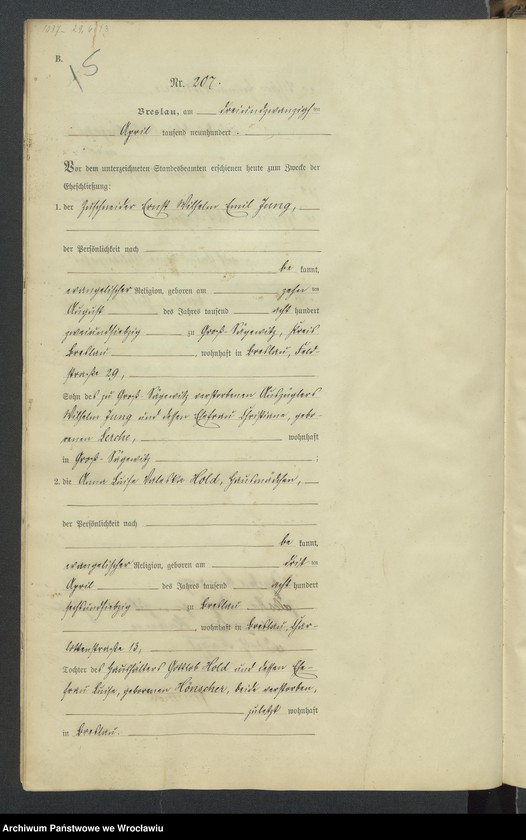 B.
15
Nr. 207.
Breslau, am dreiundzwanzigsten
April tausend neunhundert
Vor dem unterzeichneten Standesbeamten erschienen heute zum Zwecke der
Eheschließung:
1. der Zuschneider Ernst Wilhelm Emil Jung,
der Persönlichkeit nach
be kannt,
evangelischer Religion, geboren am zehnten
August des Jahres tausend acht hundert
zweiundsiebzig zu Groß-Sägewitz, Kreis
Breslau, wohnhaft in Breslau, Feld-
straße 29,
Sohn des zu Groß-Sägewitz verstorbenen Auszüglers
Wilhelm Jung und dessen Ehefrau Christiane, gebo-
renen Lerche, wohnhaft
in Groß-Sägewitz;
2. die Anna Luise Valeska Hold, Hausmädchen,
der Persönlichkeit nach
be kannt,
evangelischer Religion, geboren am dritten
April des Jahres tausend acht hundert
sechsundsiebzig zu Breslau
, wohnhaft in Breslau, Char-
lottenstraße 13,
Tochter des Haushälters Gottlob Hold und dessen Ehe-
frau Luise, geborenen Hönscher, beide verstorben,
zuletzt wohnhaft
in Breslau.
Archiwum Państwowe we Wrocławiu